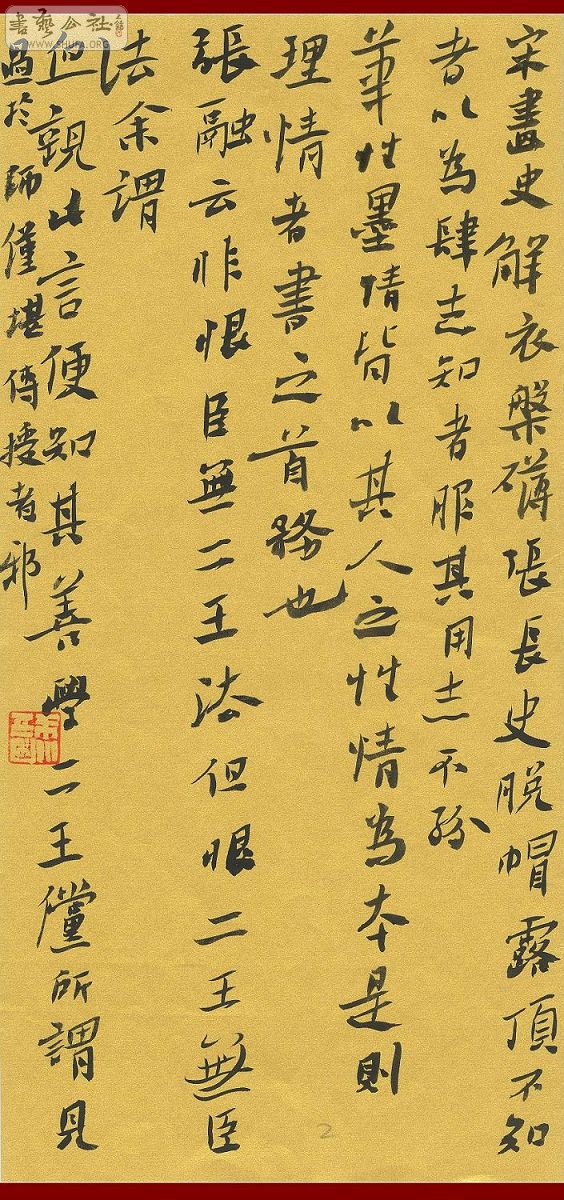 宋畫史解衣槃礴張長史脫帽露頂不知
者以為肆志知者服其用志不紛
筆性墨情皆以其人之性情為本是則
理情者書之首務也
張融云非恨臣無二王法但恨二王無臣
法余謂
但觀此言便知其善學二王儻所謂見
過於師僅堪傳授者邪
書藝公社
WWW.SHUFA.ORG
2